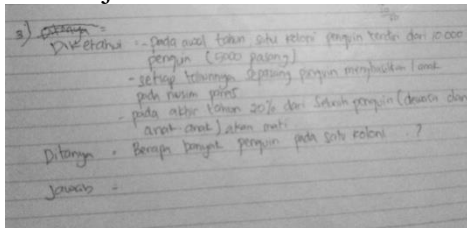 3) Ditanya =
Diketahui : - pada awal tahun satu koloni penguin terdiri dari 10.000
penguin (5000 pasang)
- setiap tahunnya sepasang penguin menghasilkan 1 anak
pada musim
- pada akhir tahun 20% dari seluruh penguin (dewasa dan
anak-anak) akan mati
Ditanya : Berapa banyak penguin pada satu koloni . ?
Jawab =